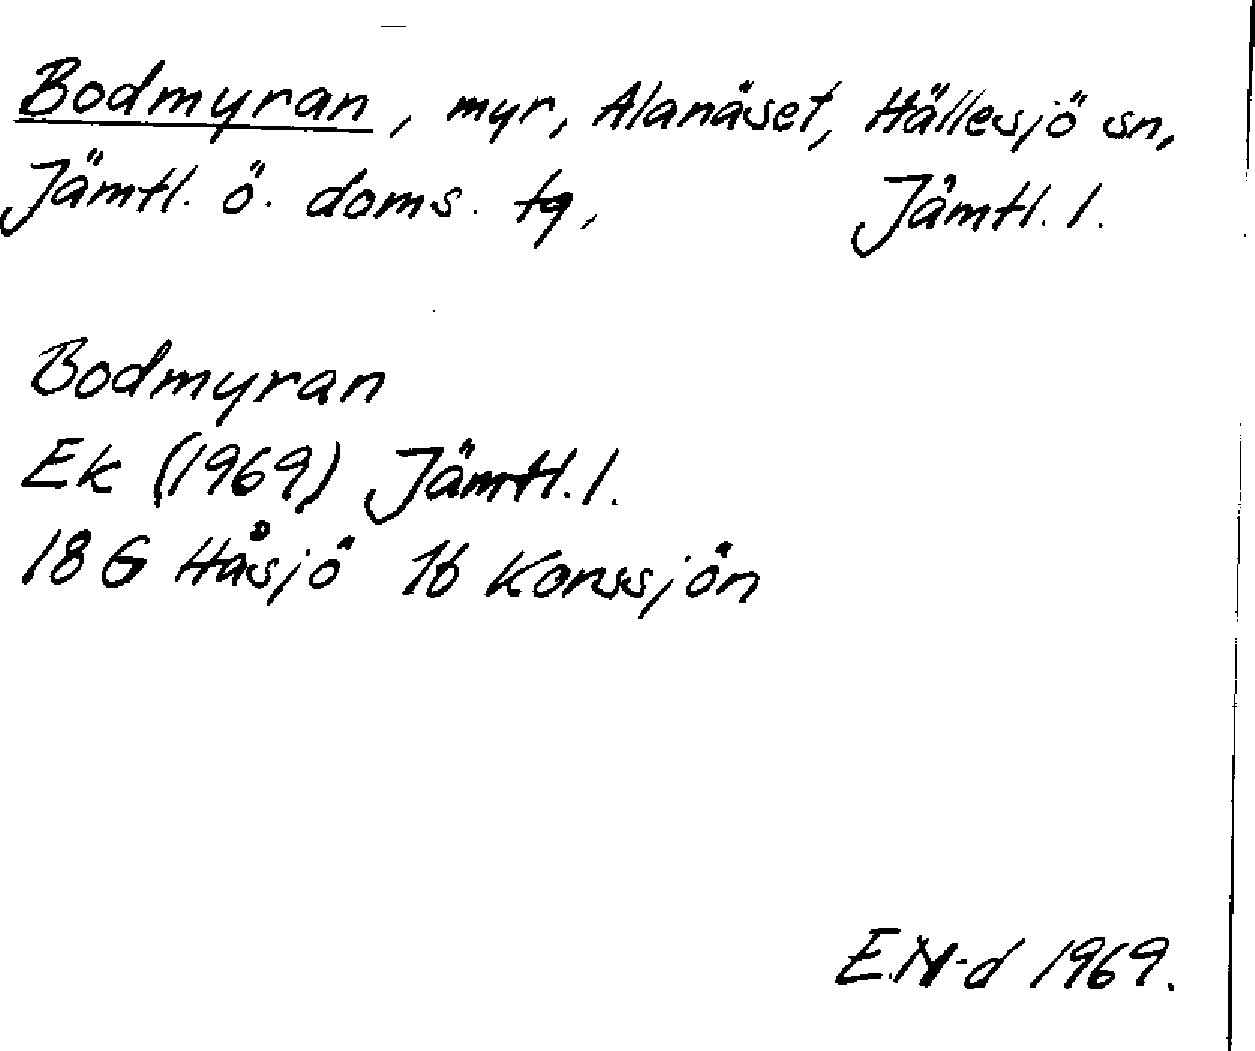 Bodmyran, myr, Alanäset, Hällesjö sn,
Jämtl. ö. doms. tg, Jämtl. l.
Bodmyran
Ek (1969) Jämtl. l.
18 G Håsjö 1b Korssjön
E.N-d 1969.